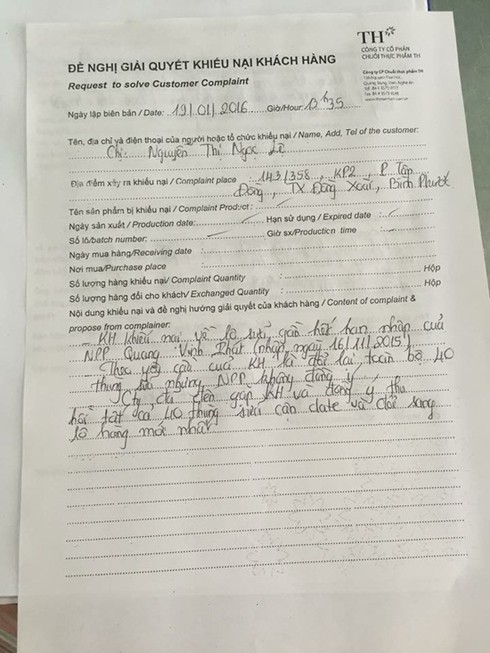 TH
CÔNG TY CỔ PHẦN
CHUỖI THỰC PHẨM TH
Công ty CP Chuỗi thực phẩm TH
ĐỀ NGHỊ GIẢI QUYẾT KHIẾU NẠI KHÁCH HÀNG
Request to solve Customer Complaint
Ngày lập biên bản / Date: 19/01/2016 Giờ/Hour: 13h35
Tên, địa chỉ và điện thoại của người hoặc tổ chức khiếu nại / Name, Add, Tel of the customer:
Chị: Nguyễn Thị Ngọc Lệ
Địa điểm xảy ra khiếu nại / Complaint place : 143/358, KP2, P. Tân
Đồng, TX Đồng Xoài, Bình Phước
Tên sản phẩm bị khiếu nại / Complaint Product :
Ngày sản xuất / Production date: Hạn sử dụng / Expired date :
Số lô/batch number: Giờ sx/Production time :
Ngày mua hàng/Receiving date :
Nơi mua/Purchase place :
Số lượng hàng khiếu nại/ Complaint Quantity : Hộp
Số lượng hàng đổi cho khách/ Exchanged Quantity : Hộp
Nội dung khiếu nại và đề nghị hướng giải quyết của khách hàng / Content of complaint &
propose from complainer:
- KH khiếu nại về lô sữa gần hết hạn nhập của
NPP Quang Vinh Phát (nhập ngày 16/11/2015)
- Theo yêu cầu của KH là đổi lại toàn bộ 40
thùng sữa nhưng NPP không đồng ý
- Cty đã đến gặp KH và đồng ý thu
hồi tất cả 40 thùng sữa cận date và đổi sang
lô hàng mới nhất.